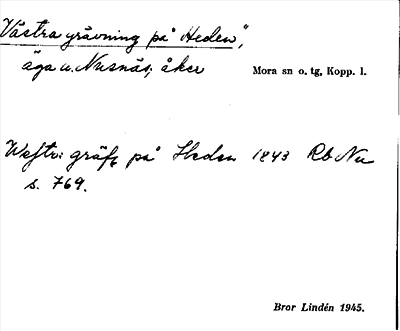 Västra grävning på Heden",
äga u. Nusnäs; åker
Mora sn o. tg, Kopp. l.
Westr: gräfg på Heden 1843 Rb Nu
s. 769.
Bror Lindén 1945.